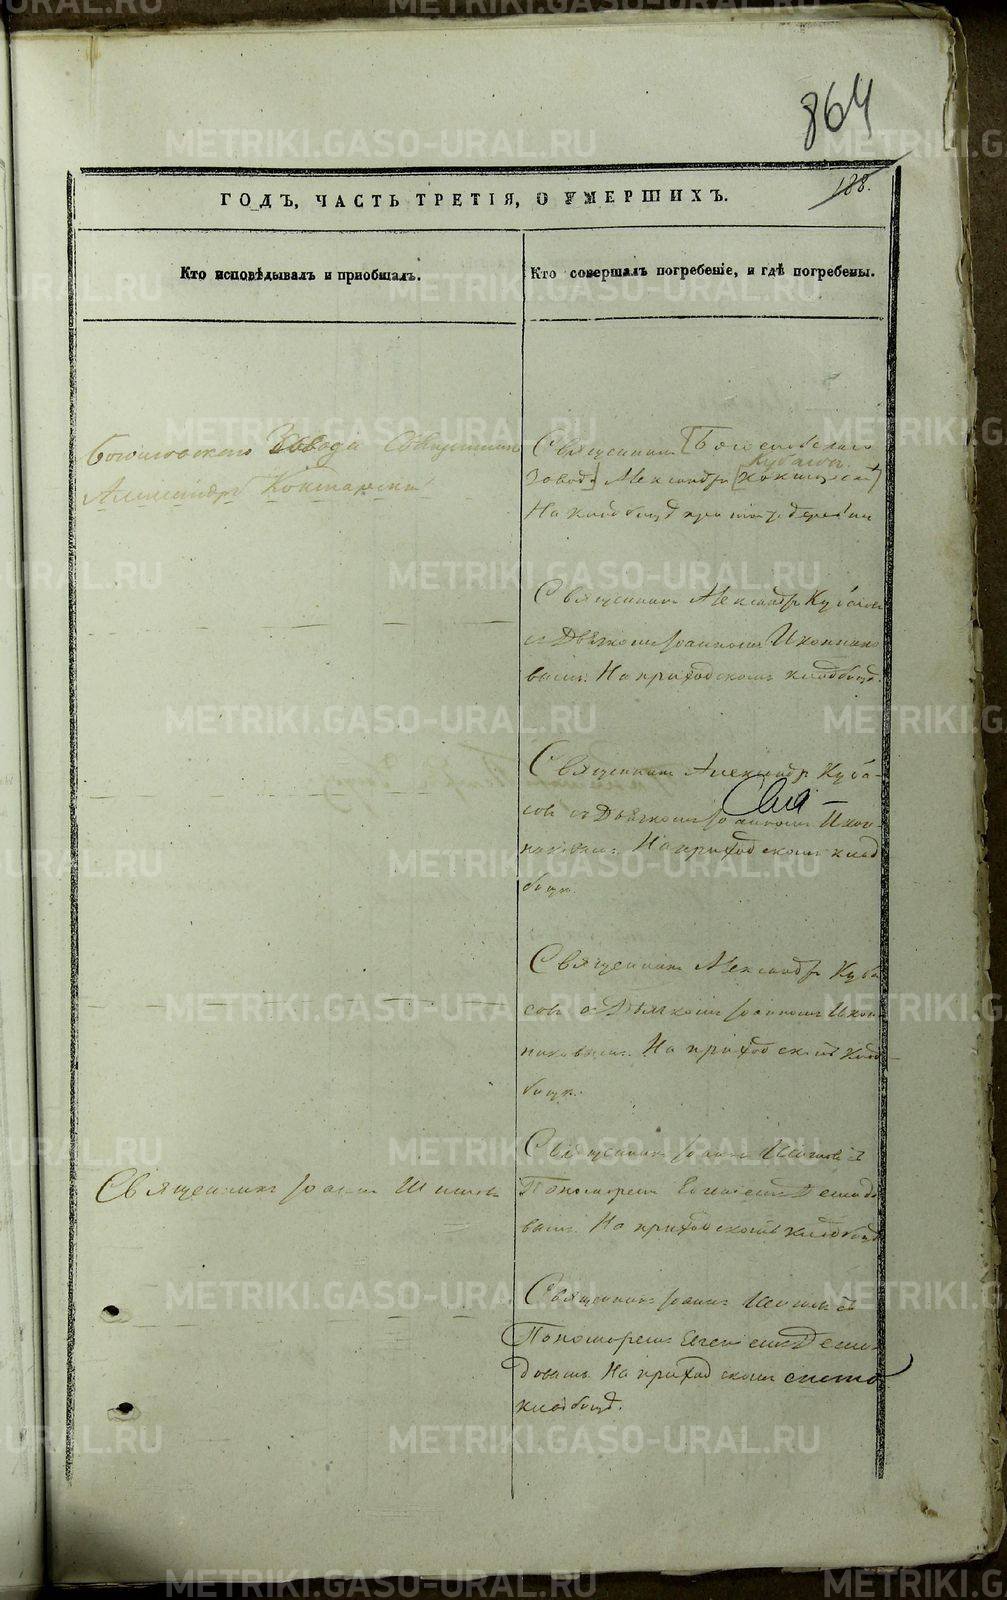 864
188.
ГОДЪ, ЧАСТЬ ТРЕТІЯ, О УМЕРШИХЪ.
Кто исповѣдывалъ и приобщалъ.
Кто совершалъ погребеніе, и гдѣ погребены.
Богословскаго Завода Священникъ
Александръ
Священникъ [Богословскаго
Кубасовъ
Завода] Александръ
На кладбищѣ при деревни
Священникъ Александръ Кубасовъ
съ Дьячкомъ Іоанномъ Иконнико
вымъ. На приходскомъ кладбищѣ.
Священникъ Александръ Куба-
совъ съ Дьячкомъ Іоанномъ Икон-
никовымъ. На приходскомъ клад
бищѣ.
Священникъ Александръ Куба
совъ съ Дьячкомъ Іоанномъ Икон
никовымъ. На приходскомъ клад-
бищѣ.
Священникъ Іоаннъ Шишовъ
Священникъ Іоаннъ съ
Пономаремъ Евгеніемъ Демидо
вымъ. На приходскомъ кладбищѣ
Священникъ Іоаннъ съ
Пономаремъ Евгеніемъ Деми
довымъ. На приходскомъ
кладбищѣ.
METRIKI.GASO-URAL.RU